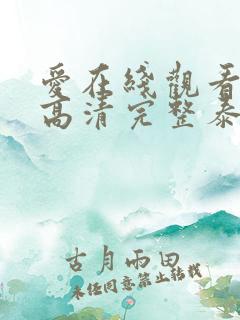 愛在綫觀看
高清完整泰
古月雨田
未经同意禁止转载